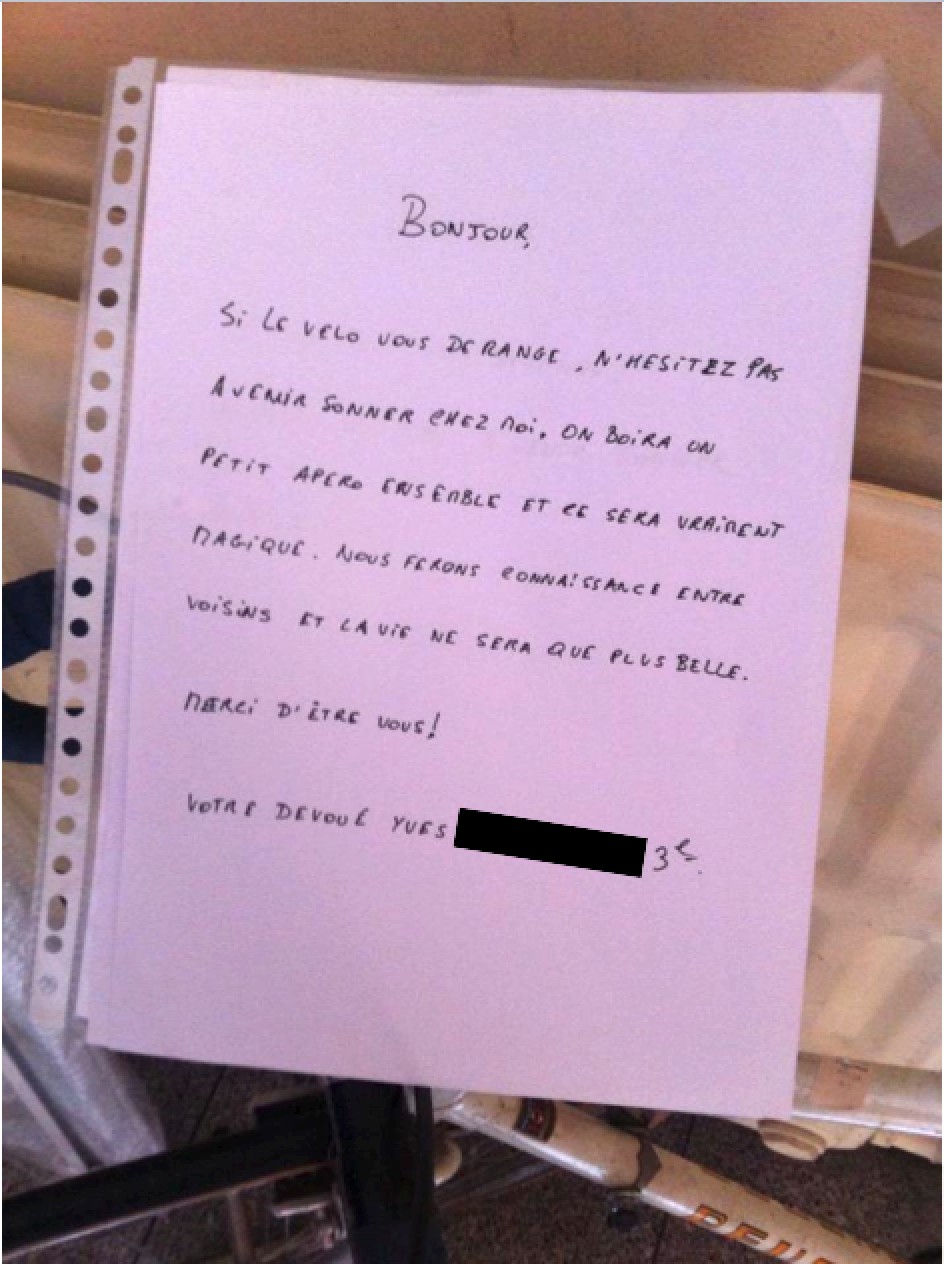 BONJOUR,
Si LE VELO VOUS DERANGE, N'HESITEZ PAS
A VENIR SONNER CHEZ MOi. ON BOiRA UN
PETiT APERO ENSEMBLE ET CE SERA VRAiMENT
MAGiQUE. NOUS FERONS CONNAiSSANCE ENTRE
VOiSiNS ET LA ViE NE SERA QUE PLUS BELLE.
MERCi D'ÊTRE VOUS!
VOTRE DEVOUÉ YVES 3e.